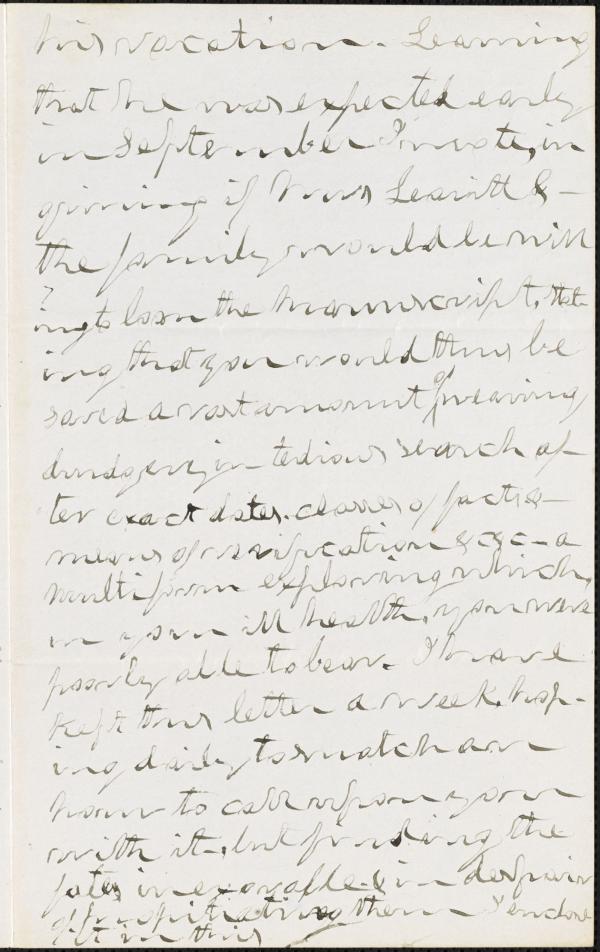 his vacation. Learning
that he was expected early
in September I wrote, in
quiring if Miss Leavitt & –
the family would be will
ing to loan the manuscript, stat
ing that you would thus be
saved a vast amount of wearing
drudgery in tedious search af–
ter exact dates, classes of facts &–
means of verification &c &c – a
multiform exploring which,
in your ill health, you were
poorly able to bear. I have
kept this letter a week, hop–
ing daily to snatch an
hour to call upon you
with it, but finding the
fates inexorable & in despair
of propitiating them I enclose
it in this